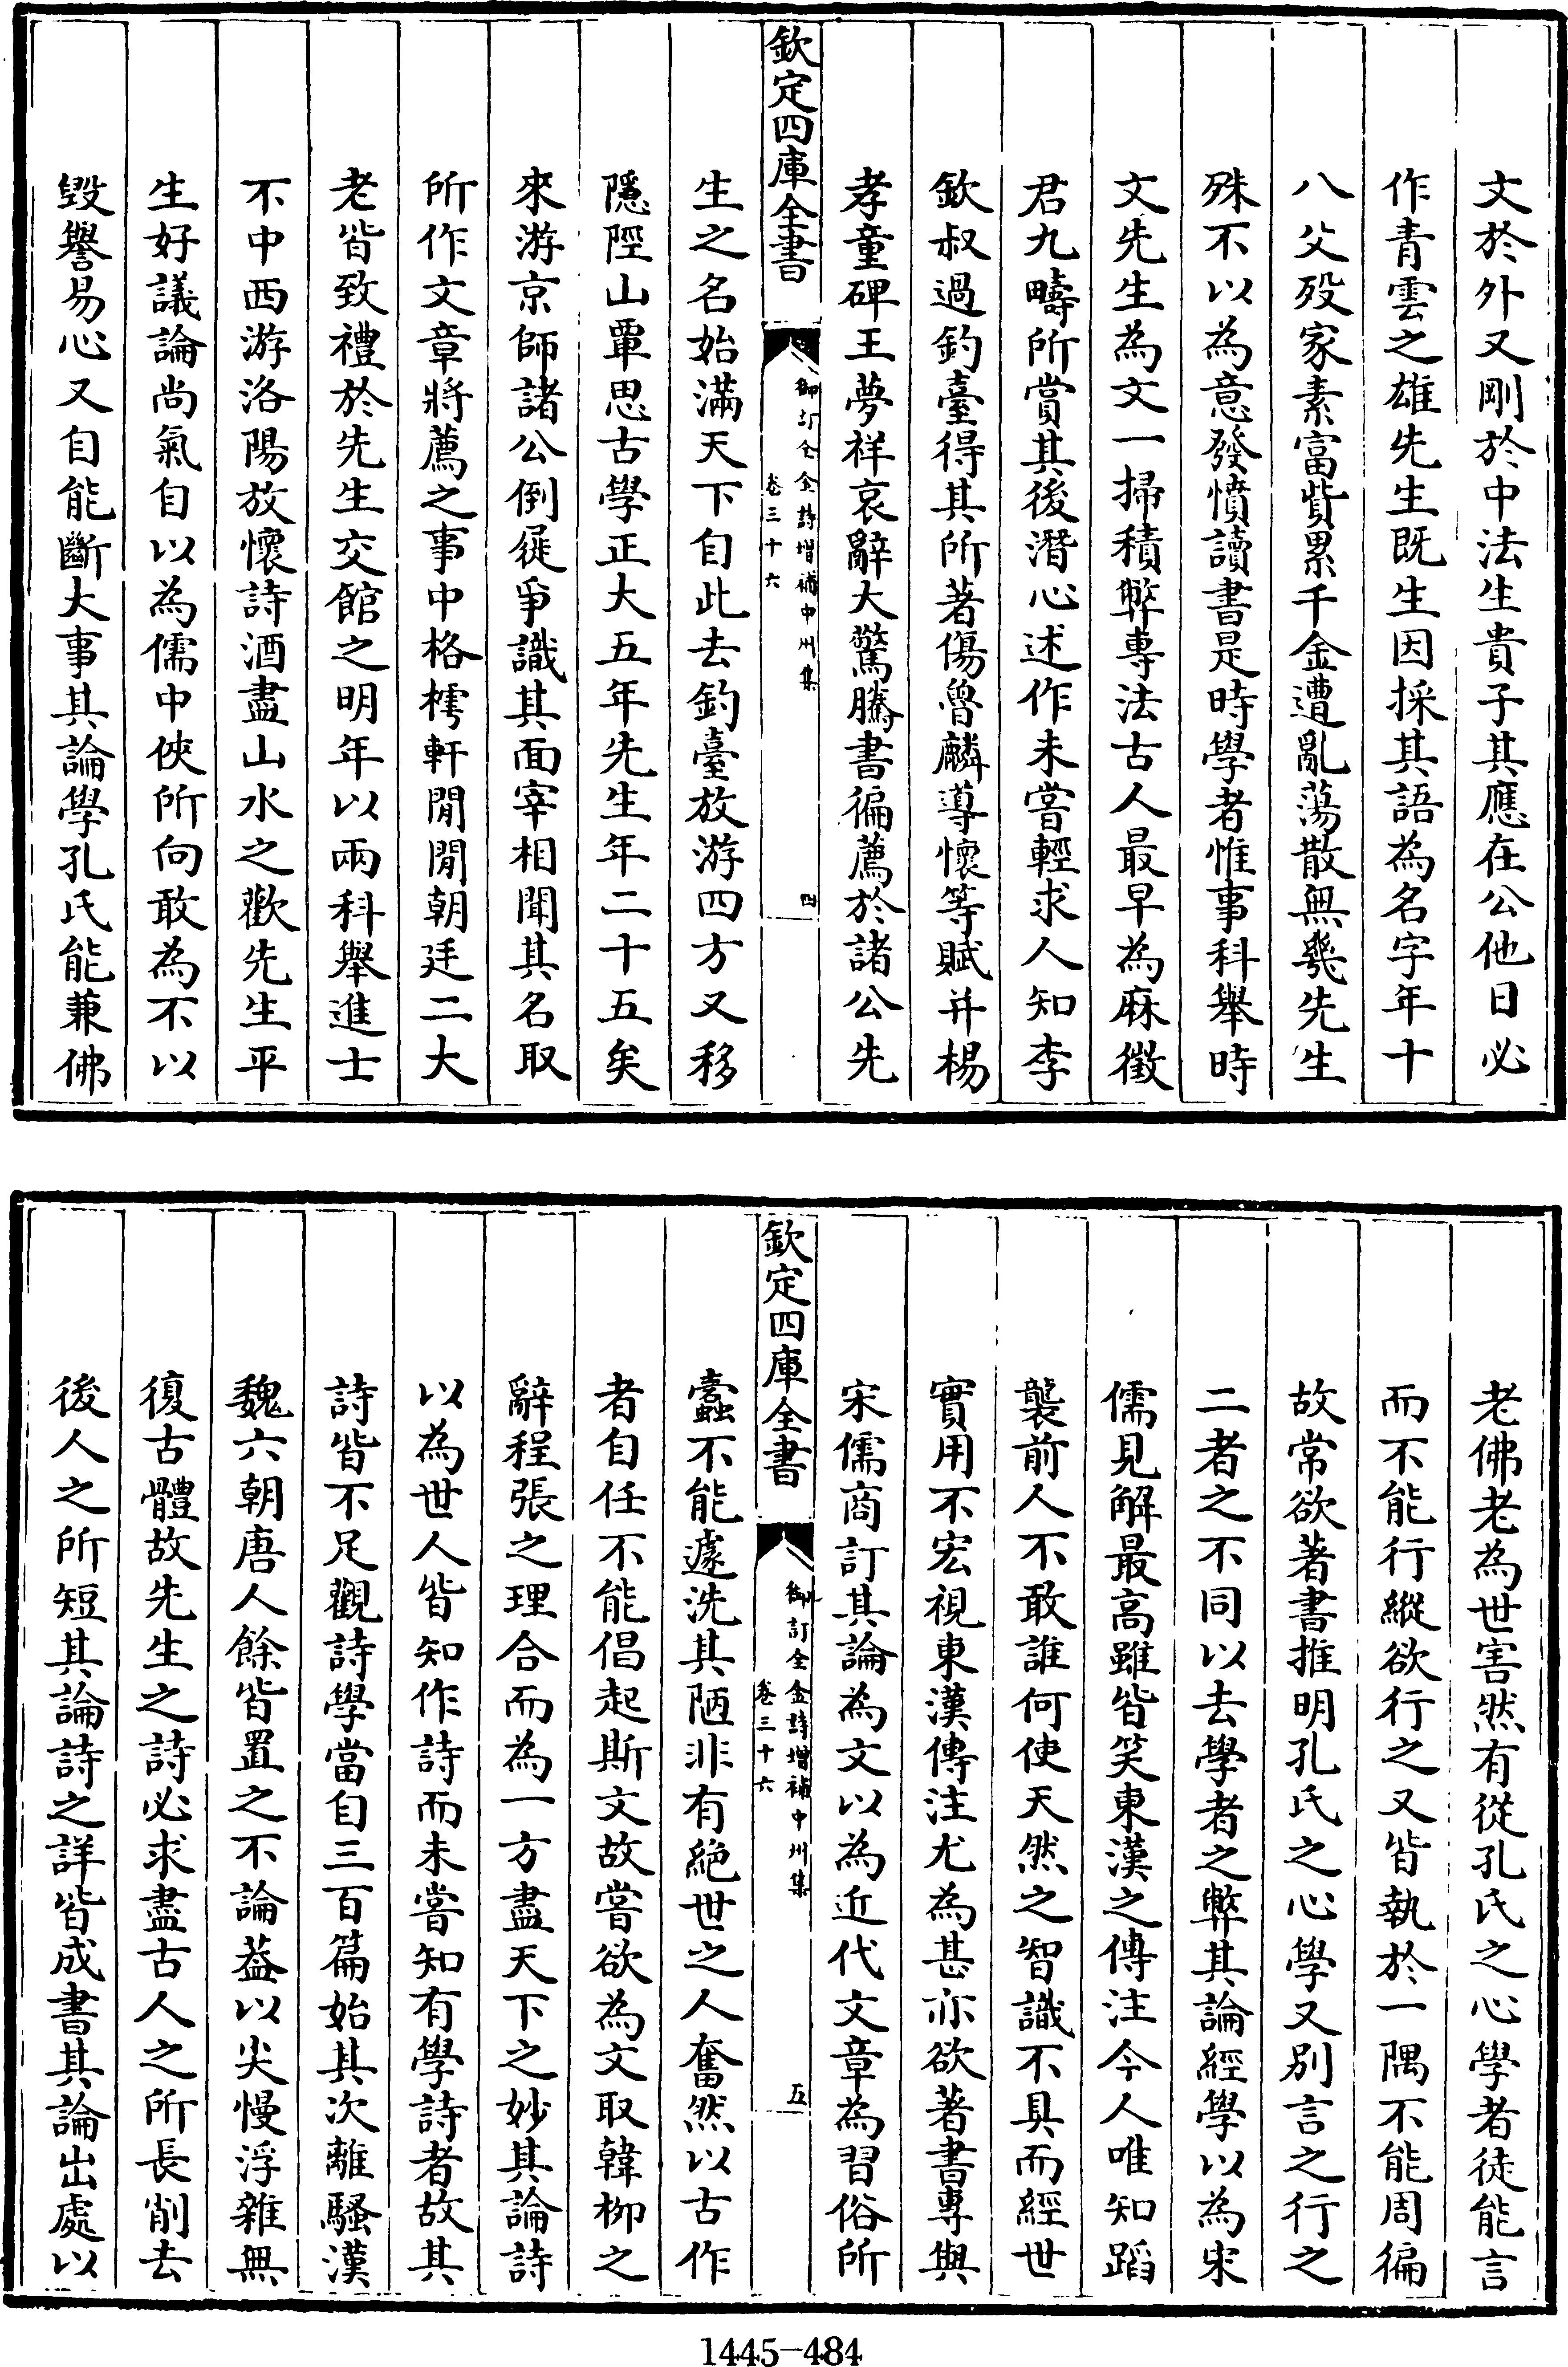 文於外又剛於中法生貴子其應在公他日必
作青雲之雄先生既生因採其語為名字年十
八父殁家素富貲累千金遭亂蕩散無幾先生
殊不以為意發憤讀書是時學者惟事科舉時
文先生為文一掃積弊專法古人最早為麻徵
君九疇所賞其後潛心述作未嘗輕求人知李
欽叔過釣臺得其所著傷魯麟導懷等賦并楊
孝童碑王夢祥哀辭大驚騰書徧薦於諸公先
欽定四庫全書
御訂全金詩增補中州集
卷三十六
四
生之名始滿天下自此去釣臺放游四方又移
隱陘山覃思古學正大五年先生年二十五矣
來游京師諸公倒屣爭識其面宰相聞其名取
所作文章將薦之事中格樗軒閒閒朝廷二大
老皆致禮於先生交館之明年以兩科舉進士
不中西游洛陽放懷詩酒盡山水之歡先生平
生好議論尚氣自以為儒中俠所向敢為不以
毀譽易心又自能斷大事其論學孔氏能兼佛
老佛老為世害然有從孔氏之心學者徒能言
而不能行縱欲行之又皆執於一隅不能周徧
故常欲著書推明孔氏之心學又別言之行之
二者之不同以去學者之弊其論經學以為宋
儒見解最高雖皆笑東漢之傳注今人唯知蹈
襲前人不敢誰何使天然之智識不具而經世
實用不宏視東漢傳注尤為甚亦欲著書專與
宋儒商訂其論為文以為近代文章為習俗所
欽定四庫全書
御訂全金詩增補中州集
卷三十六
五
蠹不能遽洗其陋非有絕世之人奮然以古作
者自任不能倡起斯文故嘗欲為文取韓柳之
辭程張之理合而為一方盡天下之妙其論詩
以為世人皆知作詩而未嘗知有學詩者故其
詩皆不足觀詩學當自三百篇始其次離騷漢
魏六朝唐人餘皆置之不論葢以尖慢浮雜無
復古體故先生之詩必求盡古人之所長削去
後人之所短其論詩之詳皆成書其論出處以
1445-484